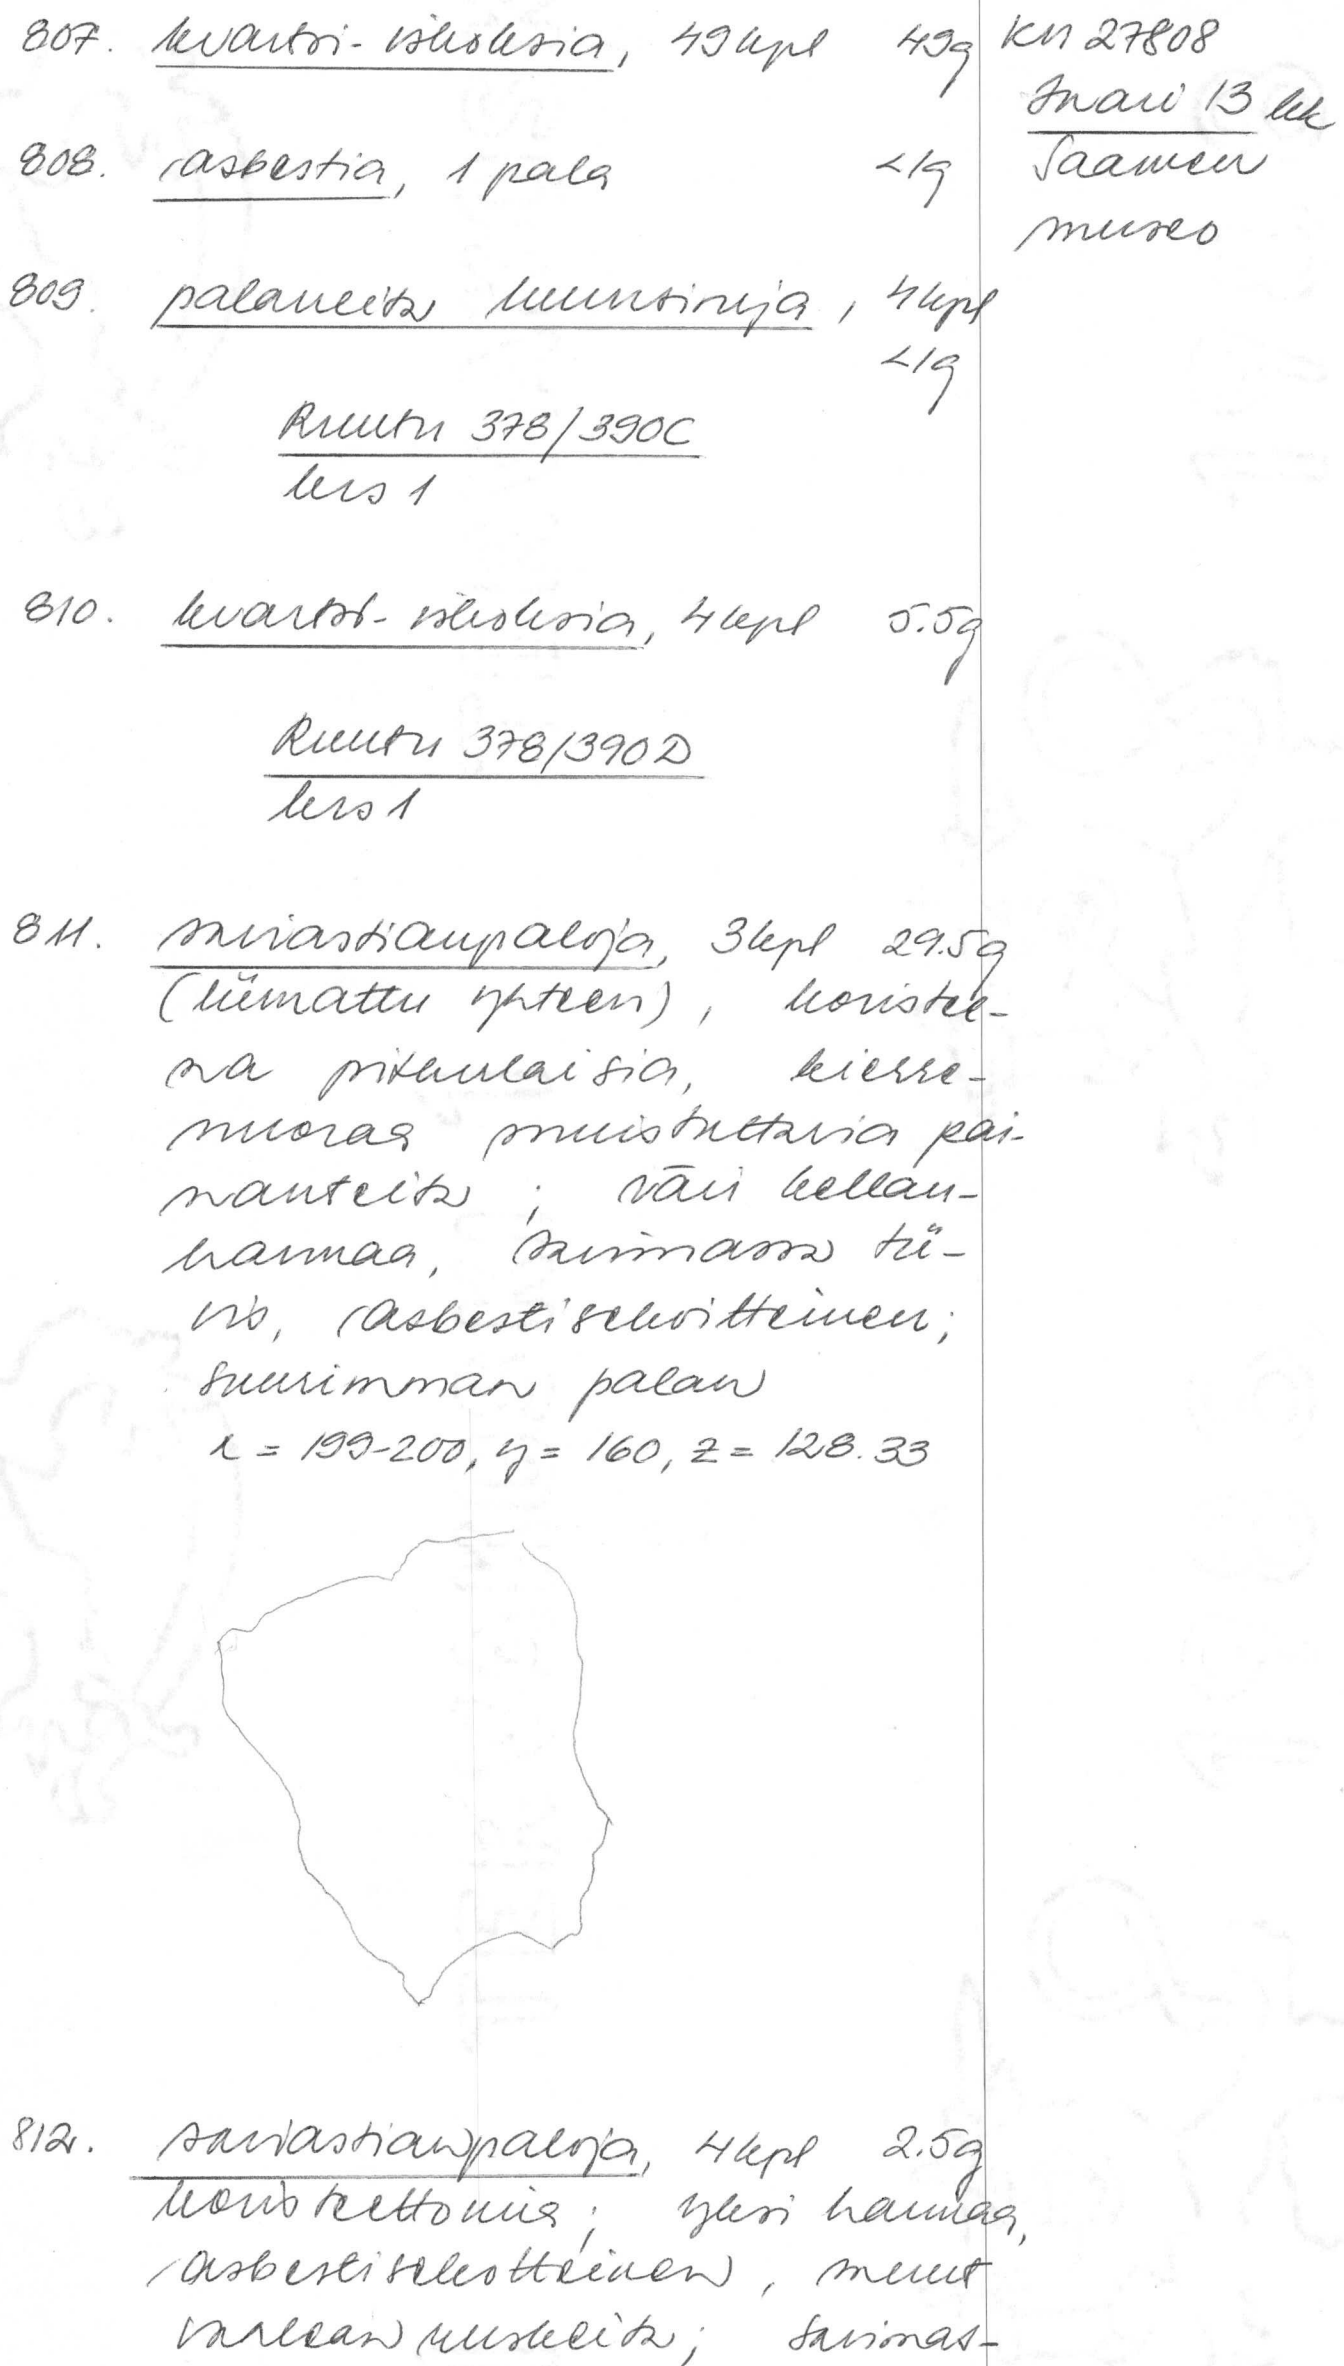 KM 27808
Inari 13 kk
Saamen
museo
807. kvartsi-iskoksia, 49 kpl 49g
808. asbestia, 1 pala <1g
809. palaneita luunsiruja, 4 kpl
<1g
Ruutu 378/390C
krs 1
810. kvartsi-iskoksia, 4 kpl 5.5g
Ruutu 378/390D
krs 1
811. saviastianpaloja, 3 kpl 29.5g
(liimattu yhteen), koristee-
na pitkulaisia, kierre-
nuoraa muistuttavia pai-
nanteita; väri kellan-
harmaa, savimassa tii-
vis, asbestisekoitteinen;
suurimman palan
x = 199-200, y = 160, z = 128.33
812. saviastianpaloja, 4 kpl 2.5g
koristeettomia; yksi harmaa,
asbestisekotteinen, muut
vaaleanruskeita; savimas-